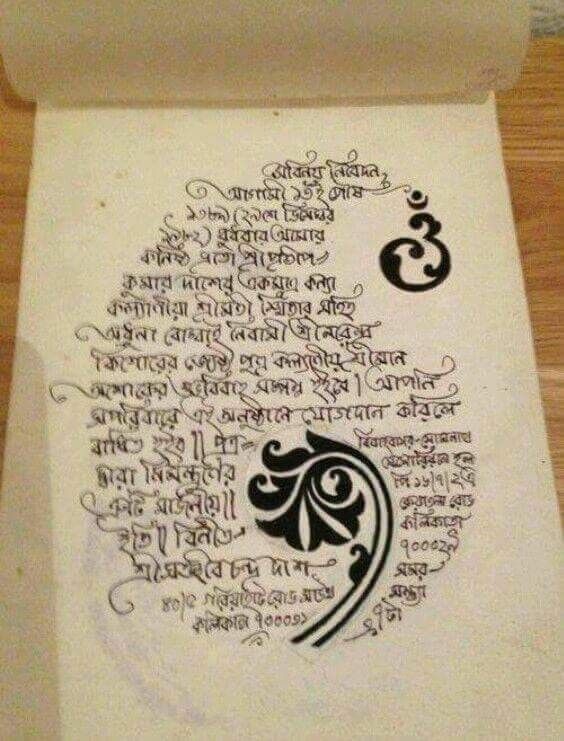 সবিনয় নিবেদন,
আগামী ১৩ই পৌষ
১৩৮৯ (২৯শে ডিসেম্বর
১৯৮২) বুধবার আমার
কনিষ্ঠ ভ্রাতা শ্রী
কুমার দাশের একমাত্র কন্যা
কল্যাণীয়া শ্রীমতী সহিত
অধুনা বোম্বাই নিবাসী শ্রী
কিশোরের জ্যেষ্ঠ পুত্র কল্যাণীয় শ্রীমান
অশোকের শুভবিবাহ সম্পন্ন হইবে। আপনি
সপরিবারে এই অনুষ্ঠানে যোগদান করিলে
বাধিত হইব॥ পত্র-
দ্বারা নিমন্ত্রণের
ত্রুটি মার্জনীয়॥
ইতি॥ বিনীত-
শ্রী চন্দ্র দাশ
গরিয়াহাট রোড
কলিকাতা
বিবাহবাসর-সোমনাথ
মেমোরিয়াল হল
পি
রোড
কলিকাতা
৭০০০২৯
সময়-
সন্ধ্যা
৭টা
ওঁ